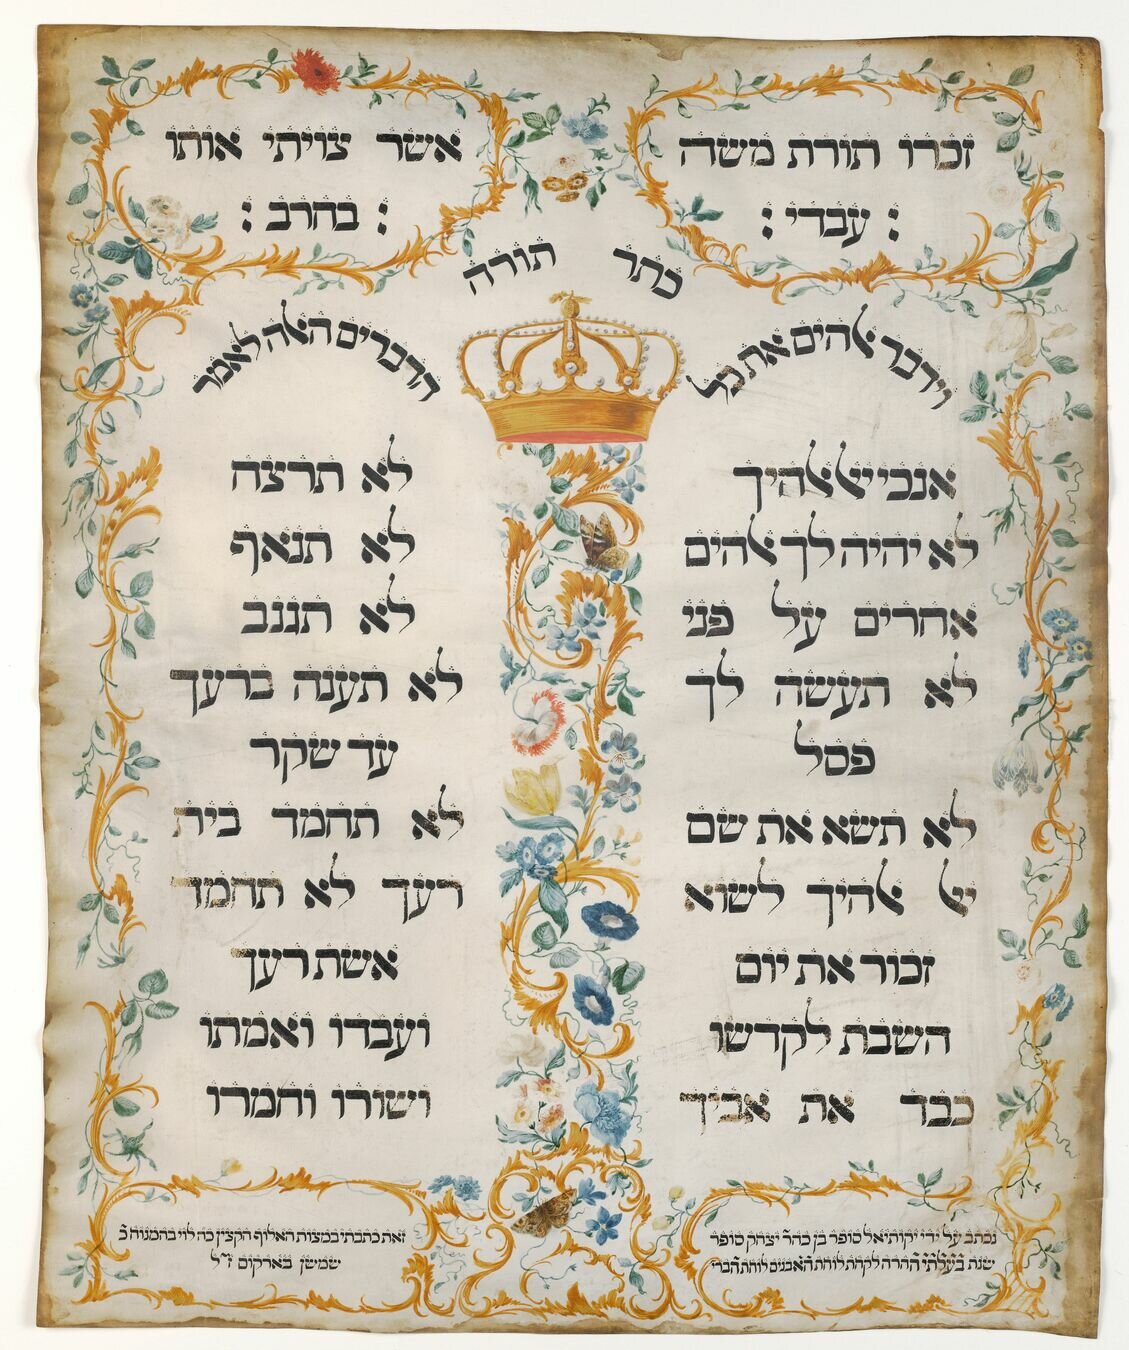 זכרו תורת משה
עבדי :
אשר צויתי אותו
בחרב :
כתר תורה
וידבר אלהים את כל
הדברים האלה לאמר
אנכי יי אלהיך
לא יהיה לך אלהים
אחרים על פני
לא תעשה לך
פסל
לא תשא את שם
יי אלהיך לשוא
זכור את יום
השבת לקדשו
כבד את אביך
לא תרצח
לא תנאף
לא תגנב
לא תענה ברעך
עד שקר
לא תחמד בית
רעך לא תחמד
אשת רעך
ועבדו ואמתו
ושורו וחמרו
נכתב על ידי יקותיאל סופר בן כהר יצחק סופר
שנת בעלתי ההרה לקחת לוחת האבנים לוחת הברי
זאת כתבתי במצות האלוף הקצין כה לוי בהמנוח כ
שמשן בארקום ז״ל